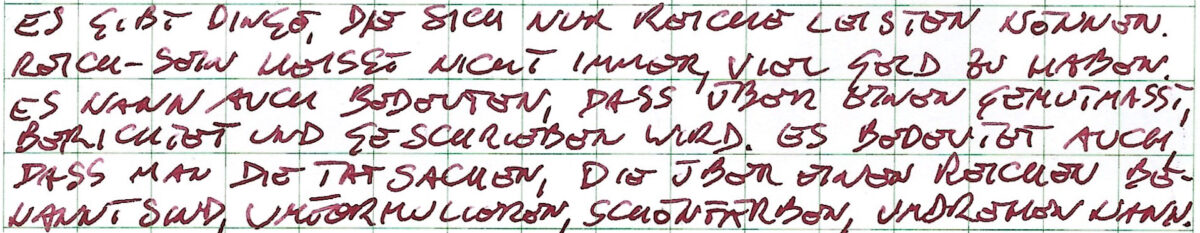 ES GIBT DINGE, DIE SICH NUR REICHE LEISTEN KÖNNEN.
REICH-SEIN HEISST NICHT IMMER, VIEL GELD ZU HABEN.
ES KANN AUCH BEDEUTEN, DASS ÜBER EINEN GEMUTMASST,
BERICHTET UND GESCHRIEBEN WIRD. ES BEDEUTET AUCH,
DASS MAN DIE TATSACHEN, DIE ÜBER EINEN REICHEN BE-
KANNT SIND, UMFORMULIEREN, SCHÖNFÄRBEN, UMDREHEN KANN.